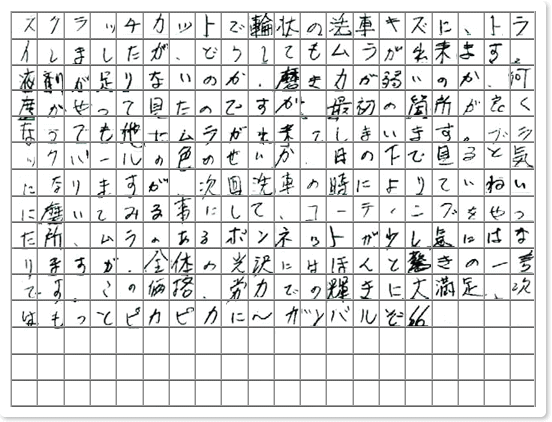 スクラッチカットで輪状の洗車キズに、トラ
イしましたが、どうしてもムラが出来ます。
液剤が足りないのか、磨き力が弱いのか、何
度かやって見たのですが、最初の箇所が良く
なっても他でムラが出来てしまいます。ブラ
ックパールの色のせいか、日の下で見ると気
になりますが、次回洗車の時によりていねい
に磨いてみる事にして、コーティングをやっ
た所、ムラのあるボンネットが少し気にはな
りますが、全体の光沢にはほんと驚きの一言
です。この価格、労力での輝きに大満足、次
はもっとピカピカに〜ガンバルぞ